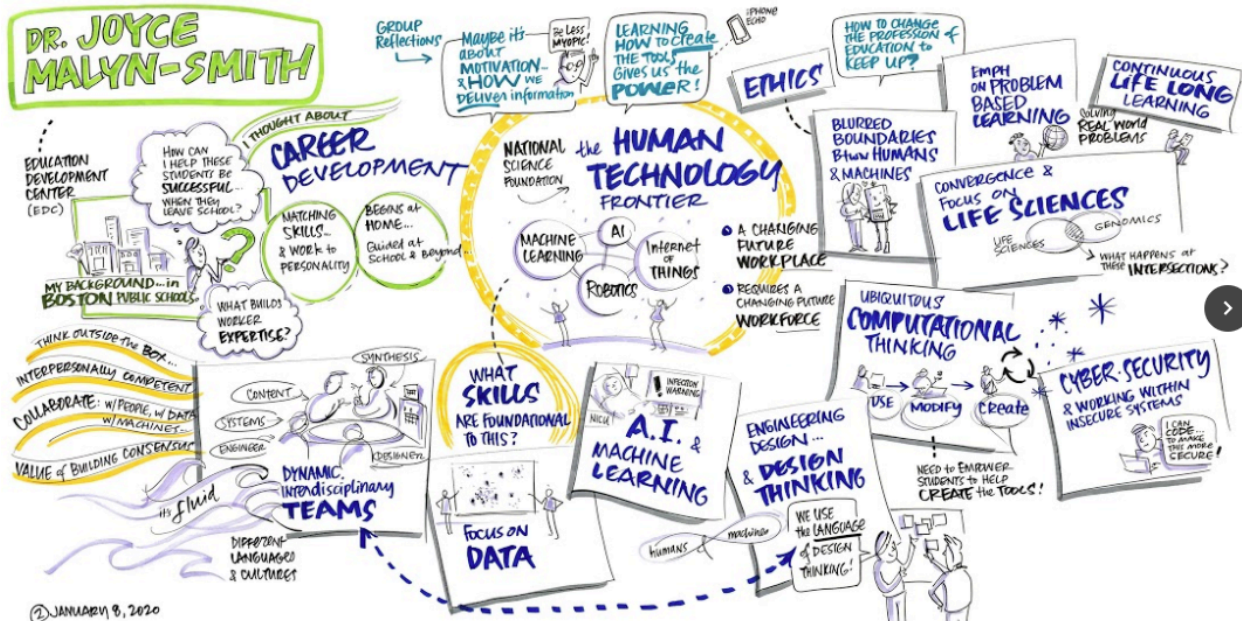 DR. JOYCE
MALYN-SMITH
EDUCATION
DEVELOPMENT
CENTER
(EDC)
HOW CAN
I HELP THESE
STUDENTS BE
SUCCESSFUL...
WHEN THEY
LEAVE SCHOOL?
MY BACKGROUND... in
BOSTON PUBLIC SCHOOLS
WHAT BUILDS
WORKER
EXPERTISE?
I THOUGHT ABOUT
CAREER
DEVELOPMENT
MATCHING
SKILLS...
& WORK to
PERSONALITY
BEGINS at
HOME...
Guided at
School & Beyond...
GROUP
Reflections
Maybe it's
about
MOTIVATION—
& HOW WE
Deliver information
Be Less
MYOPIC!
LEARNING
HOW to Create
THE TOOLS
Gives us the
POWER!
iPHONE
ECHO
NATIONAL
SCIENCE
FOUNDATION
the HUMAN
TECHNOLOGY
FRONTIER
MACHINE
LEARNING
AI
Internet
OF THINGS
ROBOTICS
A CHANGING
FUTURE
WORKPLACE
REQUIRES A
CHANGING FUTURE
WORKFORCE
ETHICS
HOW TO CHANGE
THE PROFESSION of
EDUCATION to
KEEP UP?
BLURRED
BOUNDARIES
Btwn HUMANS
& MACHINES
EMPH
ON PROBLEM
BASED
LEARNING
Solving
REAL WORLD
PROBLEMS
CONTINUOUS
LIFE LONG
LEARNING
CONVERGENCE &
FOCUS ON
LIFE SCIENCES
LIFE
SCIENCES
GENOMICS
WHAT HAPPENS AT
THESE INTERSECTIONS?
THINK OUTSIDE the BOX...
INTERPERSONALLY COMPETENT
COLLABORATE: W/PEOPLE, W/DATA
W/MACHINES...
VALUE of BUILDING CONSENSUS
it's fluid
SYNTHESIS
CONTENT
SYSTEMS
ENGINEER
DESIGNER
DYNAMIC,
Interdisciplinary
TEAMS
DIFFERENT
LANGUAGES
& CULTURES
WHAT
SKILLS
ARE FOUNDATIONAL
TO THIS?
FOCUS ON
DATA
NICU
! INFECTION
WARNING
A.I. &
MACHINE
LEARNING
ENGINEERING
DESIGN...
& DESIGN
THINKING
humans
machines
WE USE
the LANGUAGE
of DESIGN
THINKING!
UBIQUITOUS
COMPUTATIONAL
THINKING
USE
MODIFY
Create
NEED to EMPOWER
STUDENTS to HELP
CREATE the TOOLS!
CYBER-SECURITY
& WORKING WITHIN
INSECURE SYSTEMS
I CAN
CODE...
TO MAKE
THIS MORE
SECURE!
② JANUARY 8, 2020